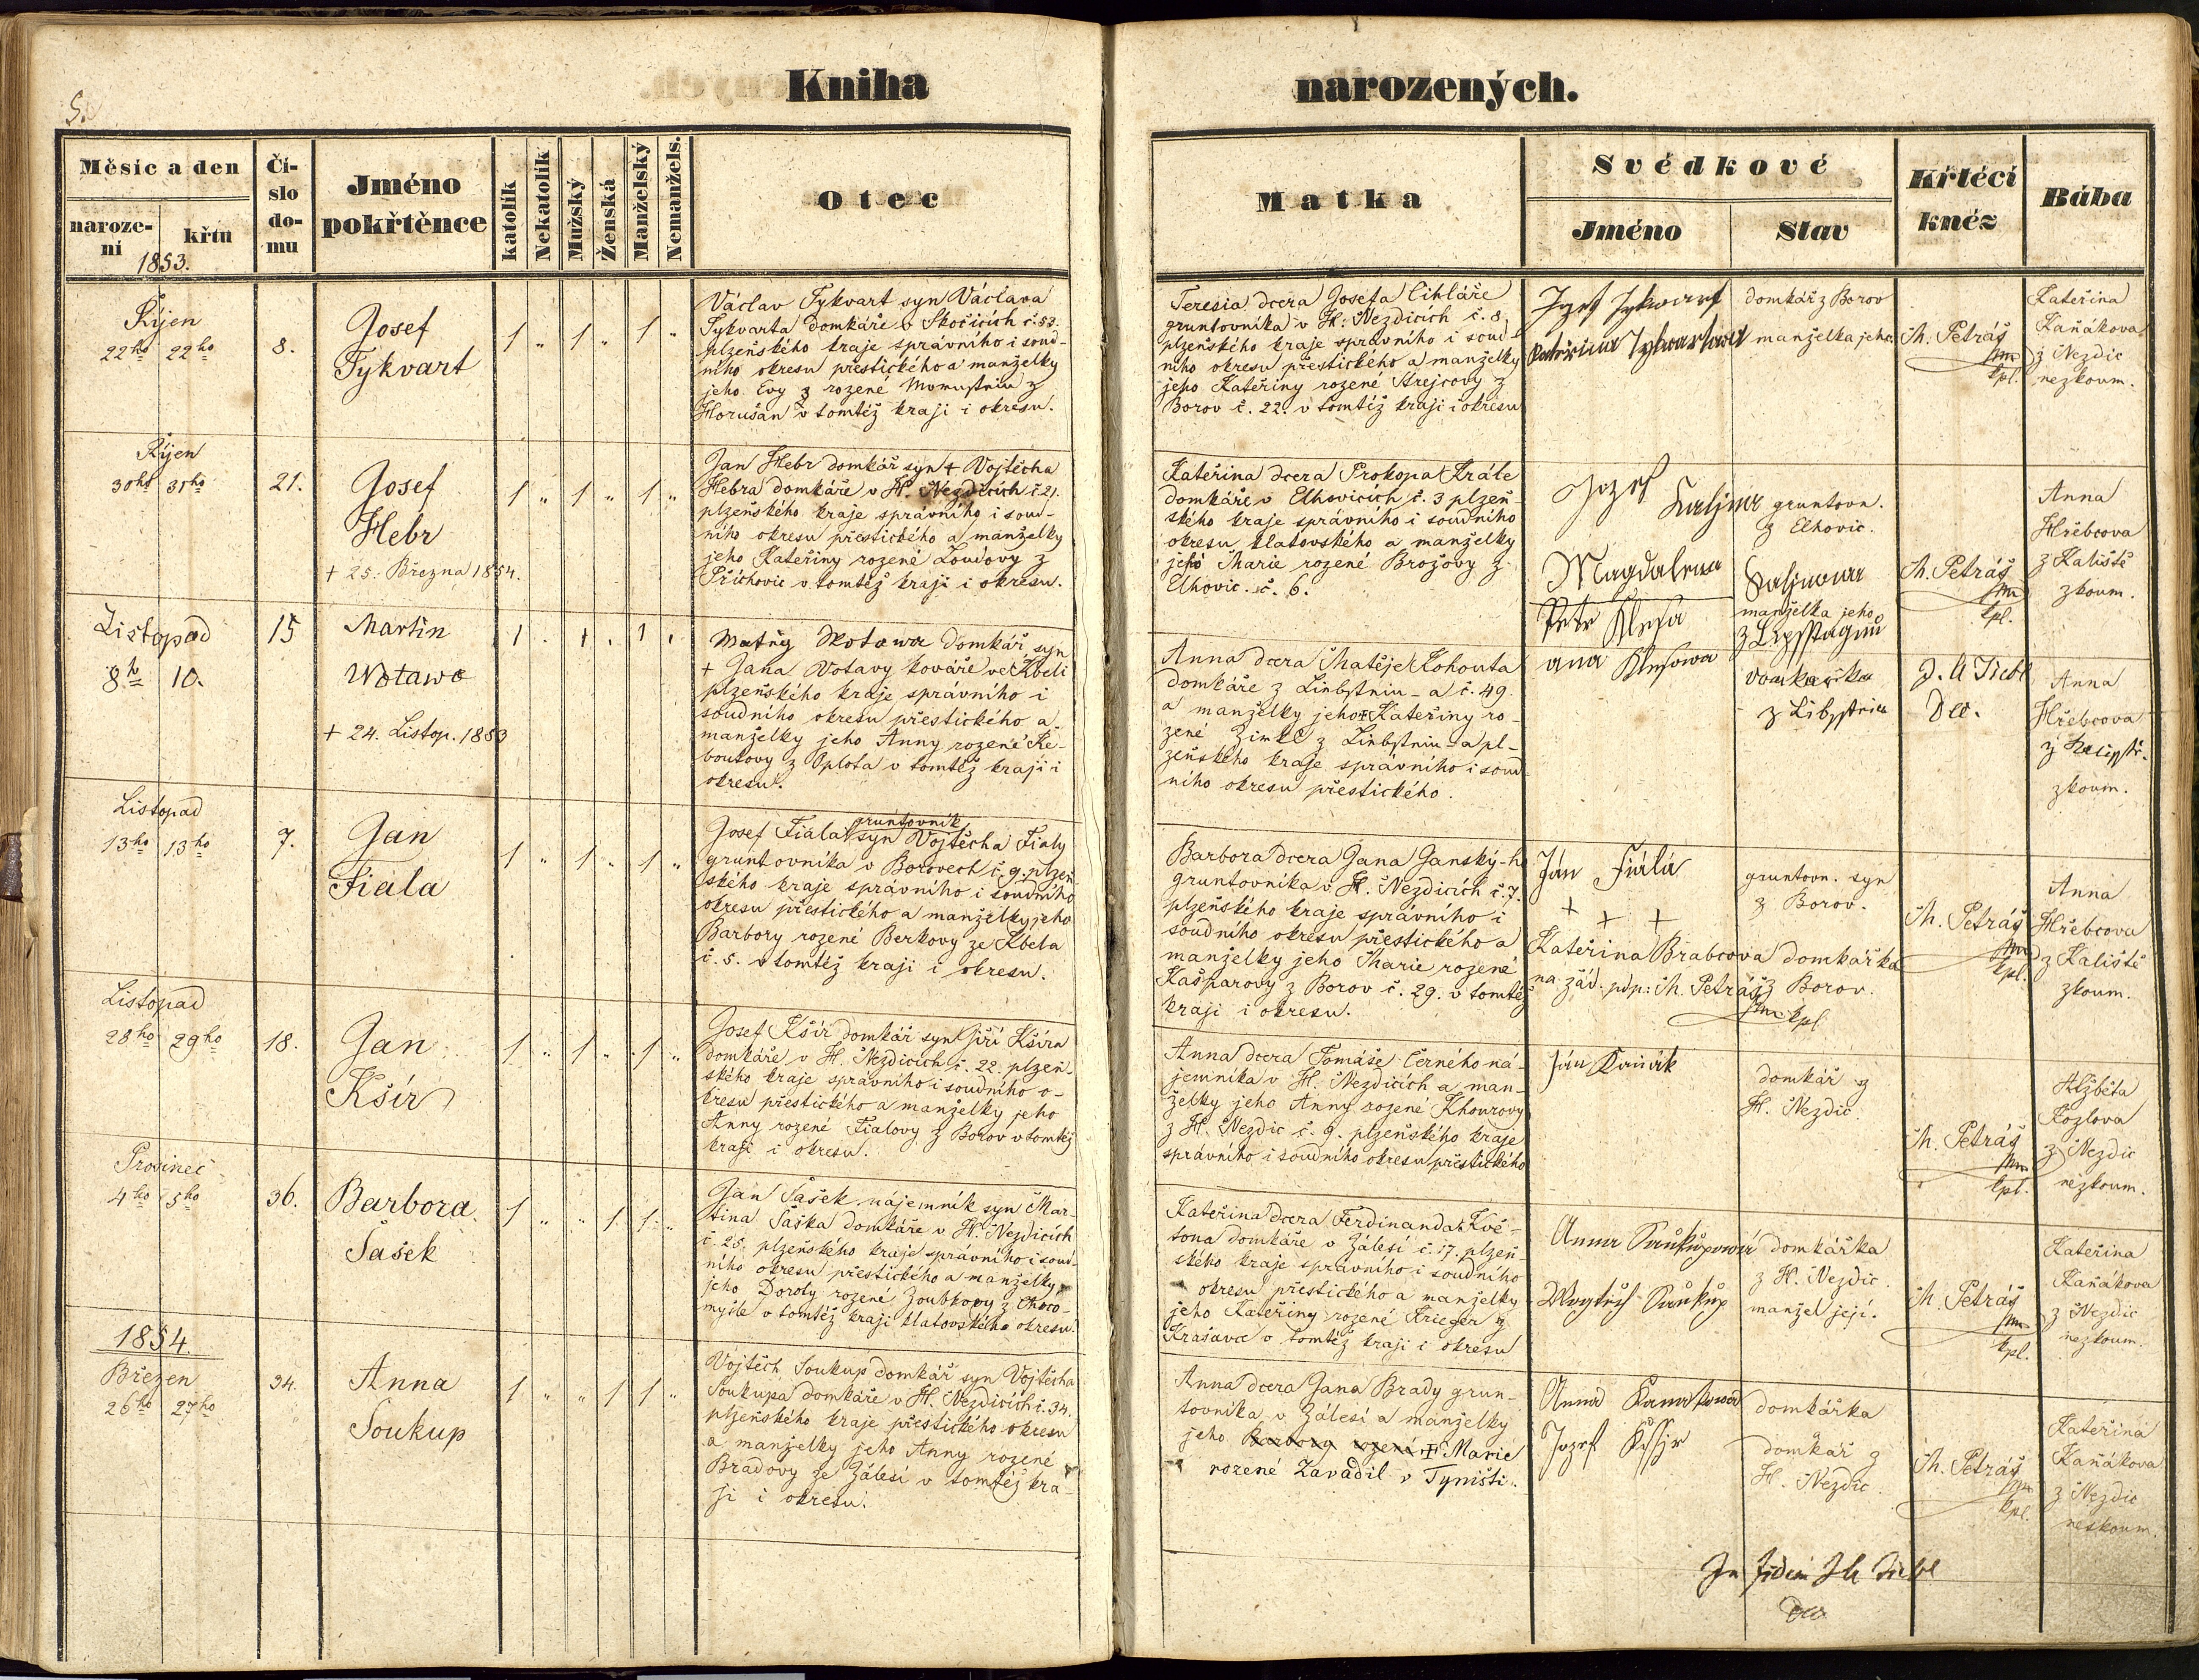 5.
Kniha narozených.
Měsíc a den
naroze-
ní
křtu
1853.
Čí-
slo
do-
mu
Jméno
pokřtěnce
katolík
Nekatolík
Mužský
Ženská
Manželský
Nemanžels.
Otec
Matka
Svědkové
Jméno
Stav
Křtěcí
kněz
Bába
Říjen
22ho 22ho
8.
Josef
Tykvart
1 " 1 1 "
Václav Tykvart syn Václava
Tykvarta domkáře v Skočicích č. 53.
plzeňského kraje správního i soud-
ního okresu přestického a manželky
jeho Evy z rozené z
Horušan v tomtéž kraji i okresu.
Teresia dcera Josefa Cihláře
gruntovníka v H. Nezdicích č. 8.
plzeňského kraje správního i soud-
ního okresu přestického a manželky
jeho Kateřiny rozené Strejcovy z
Borov č. 22. v tomtéž kraji i okresu
Jozef Tykwart
domkář z Borov
Kateřina Tykwartowa
manželka jeho
M. Petráš
kpl.
Kateřina
Kaňákova
z Nezdic
nezkoum.
Říjen
30ho 31ho
21.
Josef
Hebr
+ 25. Března 1854.
1 " 1 " 1 "
Jan Hebr domkář syn + Vojtěcha
Hebra domkáře v H. Nezdicích č. 21.
plzeňského kraje správního i soud-
ního okresu přestického a manželky
jeho Kateřiny rozené Loudovy z
Příchovic v tomtéž kraji i okresu.
Kateřina dcera Prokopa Krále
domkáře v Elhovicích č. 3 plzeň-
ského kraje správního i soudního
okresu klatovského a manželky
jeho Marie rozené Brožovy z
Elhovic. č. 6.
Jozef
Kaljna
gruntovn.
z Elhovic.
Magdalena
manželka jeho
M. Petráš
kpl.
Anna
Hřebcova
z Kaliště
zkoum.
Listopad
8ho 10.
15
Martin
Wotawa
+ 24. Listop. 1853
1 . 1 . 1 .
Matěg Wotawa domkář, syn
+ Jana Votavy kováře ve Kbeli
plzeňského kraje správního i
soudního okresu přestického a
manželky jeho Anny rozené Re-
boukovy z Oplota v tomtéž kraji i
okresu.
Anna dcera Matěje Kohouta
domkáře z Linbstnin-a č. 49.
a manželky jeho + Kateřiny ro-
zené Zinkl z Linbstnin-a pl-
zeňského kraje správního i soud-
ního okresu přestického.
Petr Klesa
ana Klesowa
domkařka
J. A Tichl
Dec.
Anna
Hřebcova
z
zkoum.
Listopad
13ho 13ho
7.
Jan
Fiala
1 " 1 " 1 "
gruntovník
Josef Fiala syn Vojtěcha Fialy
gruntovníka v Borovech č. 9. plzeň-
ského kraje správního i soudního
okresu přestického a manželky jeho
Barbory rozené Berkovy ze Kbela
č. 5. v tomtéž kraji i okresu.
Barbora dcera Jana Janský-ho
gruntovníka v H. Nezdicích č. 7.
plzeňského kraje správního i
soudního okresu přestického a
manželky jeho Marie rozené
Kašparovy z Borov č. 29. v tomtéž
kraji i okresu.
Ján Fiala
gruntovn. syn
z Borov.
+ + +
Kateřina Brabcova domkářka
na žád. pdp: M. Petráš z Borov.
kpl
M. Petráš
kpl.
Anna
Hřebcova
z Kaliště
zkoum.
Listopad
28ho 29ho
18.
Jan
Kšír
1 " 1 " 1 "
Josef Kšír domkář syn Jiří Kšíra
domkáře v H. Nezdicích č. 22. plzeň-
ského kraje správního i soudního o-
kresu přestického a manželky jeho
Anny rozené Fialovy z Borov v tomtéž
kraji i okresu.
Anna dcera Tomáše Černého ná-
jemníka v H. Nezdicích a man-
želky jeho Anny rozené Khourovy
z H. Nezdic č. 9. plzeňského kraje
správního i soudního okresu přestického
Ján Kaňák
domkář z
H. Nezdic
M. Petráš
kpl.
Alžběta
Kozlova
z Nezdic
nezkoum.
Prosinec
4ho 5ho
36.
Barbora
Šašek
1 " " 1 1 "
Jan Šašek nájemník syn Mar-
tina Šaška domkáře v H. Nezdicích
č. 25. plzeňského kraje správního i soud-
ního okresu přestického a manželky
jeho Doroty rozené Zoubkovy z Choco-
myšle v tomtéž kraji klatovského okresu.
Kateřina dcera Ferdinanda Kvě-
tona domkáře v Zálesí č. 17. plzeň-
ského kraje správního i soudního
okresu přestického a manželky
jeho Kateřiny rozené Krieger z
Krašavce v tomtéž kraji i okresu
Anna Saukupowá
domkářka
z H. Nezdic
Wogtěch Saukup
manžel její.
M. Petráš
kpl.
Kateřina
Kaňákova
z Nezdic
nezkoum.
1854.
Březen
26ho 27ho
34.
Anna
Soukup
1 " " 1 1 "
Vojtěch Soukup domkář syn Vojtěcha
Soukupa domkáře v H. Nezdicích č. 34.
plzeňského kraje přestického okresu
a manželky jeho Anny rozené
Bradovy ze Zálesí v tomtéž kra-
ji i okresu.
Anna dcera Jana Brady grun-
tovníka v Zálesí a manželky
jeho Barbory rozené + Marie
rozené Zavadil v Týništi.
Anna Kanakowa
domkářka
Jozef Kssjr
domkář z
H. Nezdic.
M. Petráš
kpl.
Kateřina
Kaňákova
z Nezdic
neskoum.